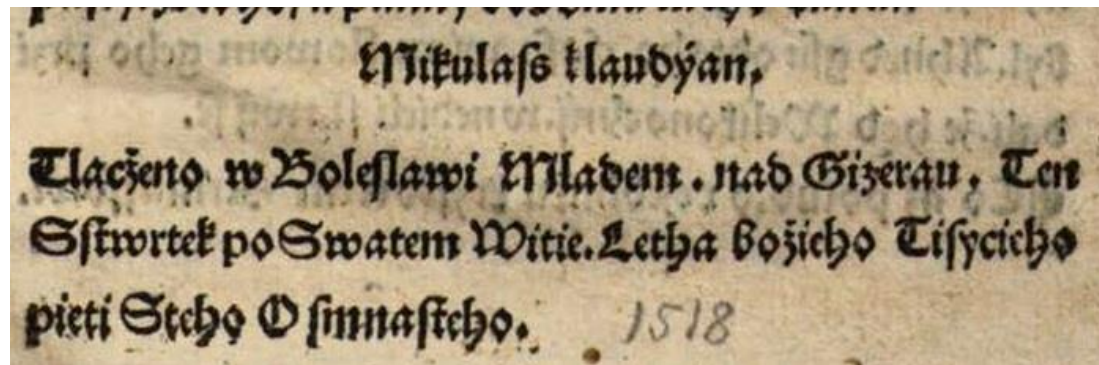 Mikulaſs klaudýan.
Tlacženo w Boleſlawi Mladem. nad Gizerau. Ten
Sſtwrtek po Swatem Witie. Letha božieho Tiſycieho
pieti Steho Oſmnaſteho. 1518